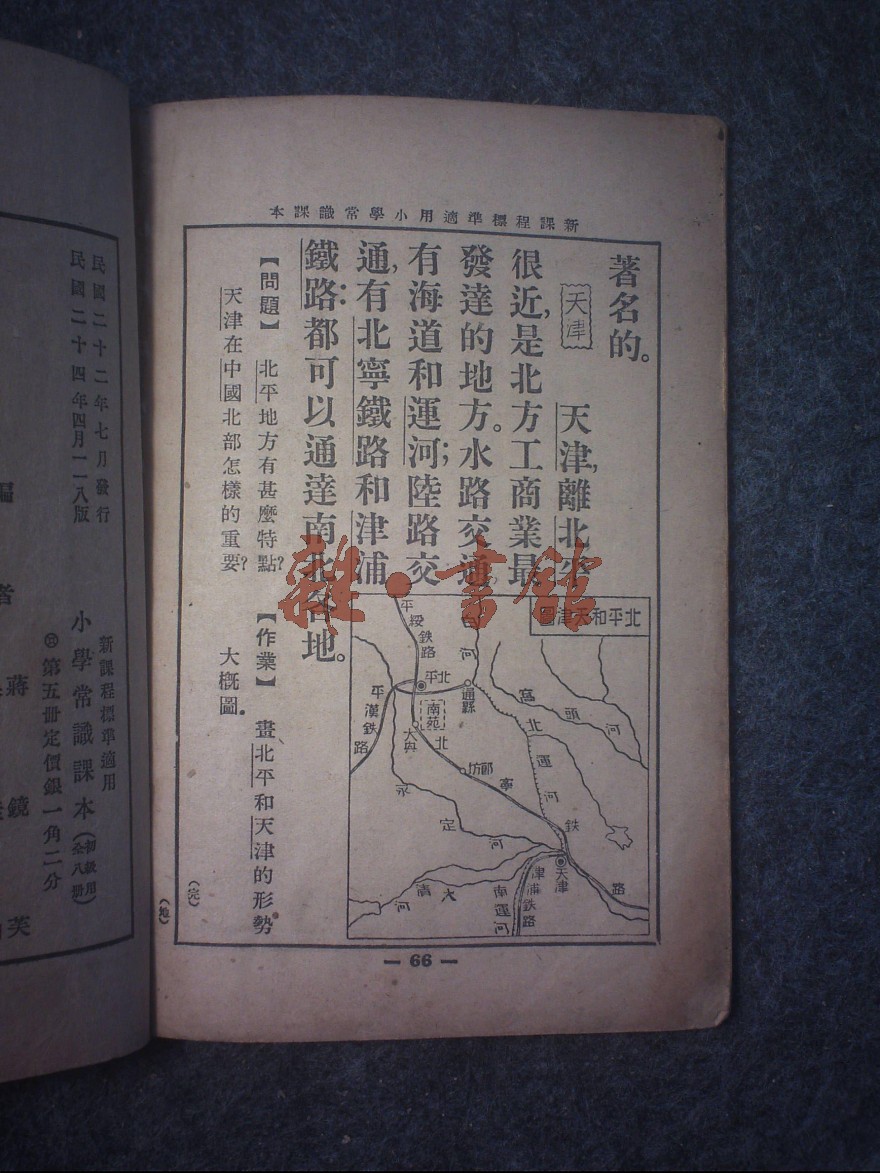 新課程標準適用小學常識課本
著名的。
天津
天津,離北平
很近,是北方工商業最
發達的地方。水路交通,
有海道和運河;陸路交
通,有北寧鐵路和津浦
鐵路:都可以通達南北各地。
【問題】 北平地方有甚麼特點?
天津在中國北部怎樣的重要?
【作業】 畫北平和天津的形勢
大概圖。
(完)
北平和天津圖
平綏鉄路
白河
北平
通縣
南苑
大興
平漢鉄路
窩頭河
北運河
北寧鉄路
永定河
天津
大清河
南運河
津浦鉄路
— 66 —
(地)
雜·書館
新課程標準適用
小學常識課本(初級用全八冊)
第五冊定價銀一角二分
民國二十二年七月發行
民國二十四年四月一一八版
編 者
蔣 鏡 芙